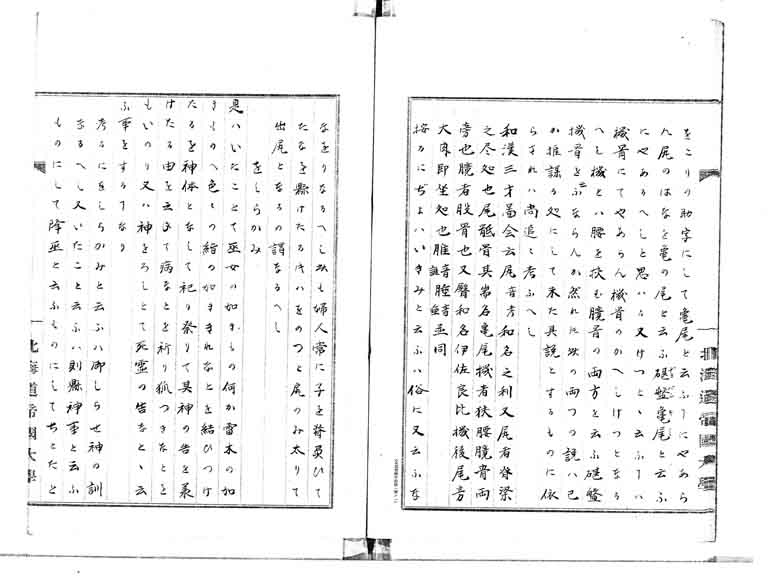 をこりの助字にして亀尾と云ふヿにやあら
ん尾のはなを亀の尾と云ふ磑盤亀尾と云ふ
にやあるへしと思ハる又けつと、云ふヿハ
橛骨にてやあらん橛骨のかへしけつとなる
へし橛とハ腰を挟む髖骨の両方を云ふ磑盤
橛骨をふならんか然れ共此の両つの説ハ己
か推論する処にして未た具説とするものに依
らされハ尚追て考ふへし
和漢三才圖会云尻音考和名之利又尻者脊梁
之尽処也尾骶骨其耑名亀尾橛者狭腰髖骨両
傍也髖者股骨也又臀和名伊佐良比橛後尾旁
大肉即坐処也脽音誰䐁音并同
按るにぢよハいきみと云ふハ俗に又云ふな
なをりなるへし故も婦人常に子を脊負ひて
たなを懸けたる時ハをのつと尻のみ太りて
出尻となるの謂なるへし
をしらかみ
是ハいたことて巫女の如きもの何か雷木の如
きものへ色々の絹の如ききれなとを結ひつけ
たるを神体となして祀り祭りて其神の告を承
けたる由を云ふて病なとを祈り狐つきなとを
もいのり又ハ神をろしとて死霊の告なと、云
ふ事をするヿなり
考るにをしらかみと云ふハ御しらせ神の訓
なるへし又いたこと云ふハ則縣神事と云ふ
ものにして降巫と云ふものにしてちとたと
北海道帝國大學
北海道帝國大學